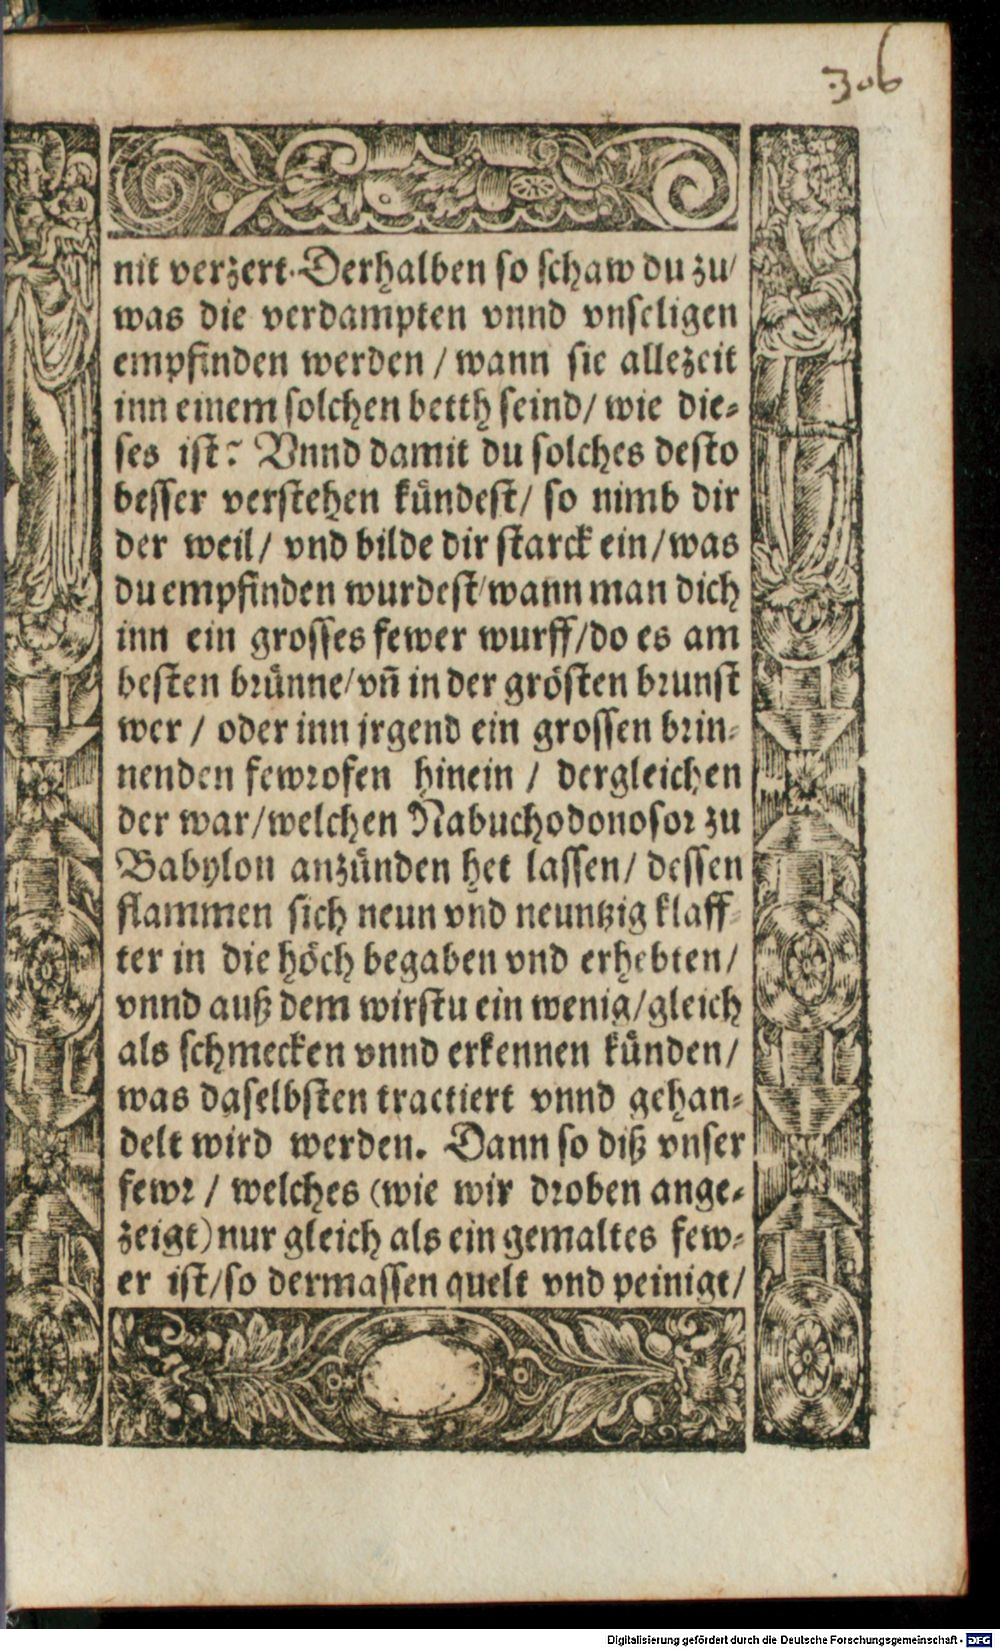 306
nit verzert. Derhalben so schaw du zu/
was die verdampten vnnd vnseligen
empfinden werden / wann sie allezeit
inn einem solchen betth seind/ wie die-
ses ist? Vnnd damit du solches desto
besser verstehen kündest/ so nimb dir
der weil/ vnd bilde dir starck ein/was
du empfinden wurdest/wann man dich
inn ein grosses fewer wurff/do es am
besten brünne/vn̄ in der grösten brunst
wer / oder inn jrgend ein grossen brin-
nenden fewrofen hinein / dergleichen
der war/welchen Nabuchodonosor zu
Babylon anzünden het lassen/ dessen
flammen sich neun vnd neuntzig klaff-
ter in die höch begaben vnd erhebten/
vnnd auß dem wirstu ein wenig/gleich
als schmecken vnnd erkennen künden/
was daselbsten tractiert vnnd gehan-
delt wird werden. Dann so diß vnser
fewr / welches (wie wir droben ange-
zeigt) nur gleich als ein gemaltes few-
er ist/so dermassen quelt vnd peinigt/
Digitalisierung gefördert durch die Deutsche Forschungsgemeinschaft - DFG